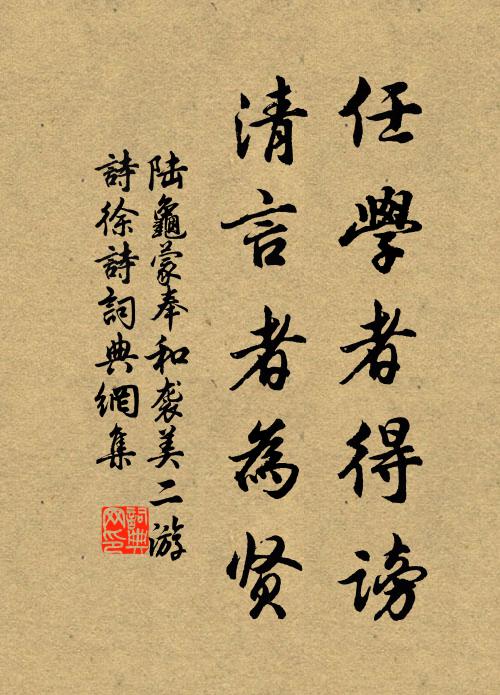 任學者得謗
清言者為贤
陸龜蒙奉和袭美二游
詩徐詩詞典網集
詞典网印